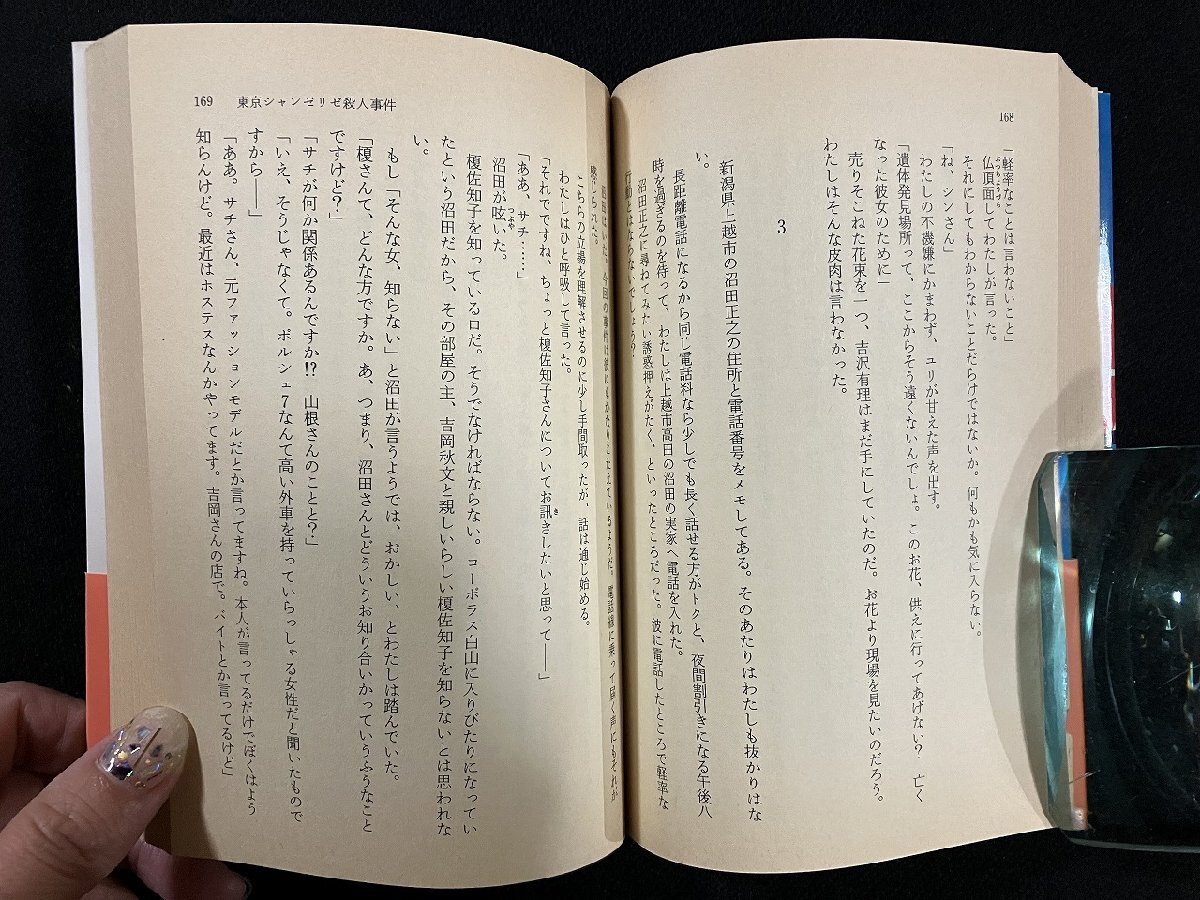 168
「軽率なことは言わないこと」
仏頂面してわたしが言った。
それにしてもわからないことだらけではないか。何もかも気に入らない。
「ね、シンさん」
わたしの不機嫌にかまわず、ユリが甘えた声を出す。
「遺体発見場所って、ここからそう遠くないんでしょ。このお花、供えに行ってあげない？ 亡く
なった彼女のために」
売りそこねた花束を一つ、吉沢有理はまだ手にしていたのだ。お花より現場を見たいのだろう。
わたしはそんな皮肉は言わなかった。
3
新潟県上越市の沼田正之の住所と電話番号をメモしてある。そのあたりはわたしも抜かりはな
い。
長距離電話になるから同じ電話料なら少しでも長く話せる方がトクと、夜間割引きになる午後八
時を過ぎるのを待って、わたしは上越市高田の沼田の実家へ電話を入れた。
沼田正之に尋ねてみたい誘惑押えがたく、といったところだった。彼に電話したところで軽率な
行動とはならないでしょう？
169 東京シャンゼリゼ殺人事件
感じられた。
こちらの立場を理解させるのに少し手間取ったが、話は通じ始める。
わたしはひと呼吸して言った。
「それでですね、ちょっと榎佐知子さんについてお訊きしたいと思って――」
「ああ、サチ……」
沼田が呟いた。
榎佐知子を知っている口だ。そうでなければならない。コーポラス白山に入りびたりになってい
たという沼田だから、その部屋の主、吉岡秋文と親しいらしい榎佐知子を知らないとは思われな
い。
もし「そんな女、知らない」と沼田が言うようでは、おかしい、とわたしは踏んでいた。
「榎さんて、どんな方ですか。あ、つまり、沼田さんとどういうお知り合いかっていうふうなこと
ですけど？」
「サチが何か関係あるんですか!? 山根さんのことと？」
「いえ、そうじゃなくて。ポルシェ7なんて高い外車を持っていらっしゃる女性だと聞いたもので
すから――」
「ああ。サチさん、元ファッションモデルだとか言ってますね。本人が言ってるだけでぼくはよう
知らんけど。最近はホステスなんかやってます。吉岡さんの店で。バイトとか言ってるけど」